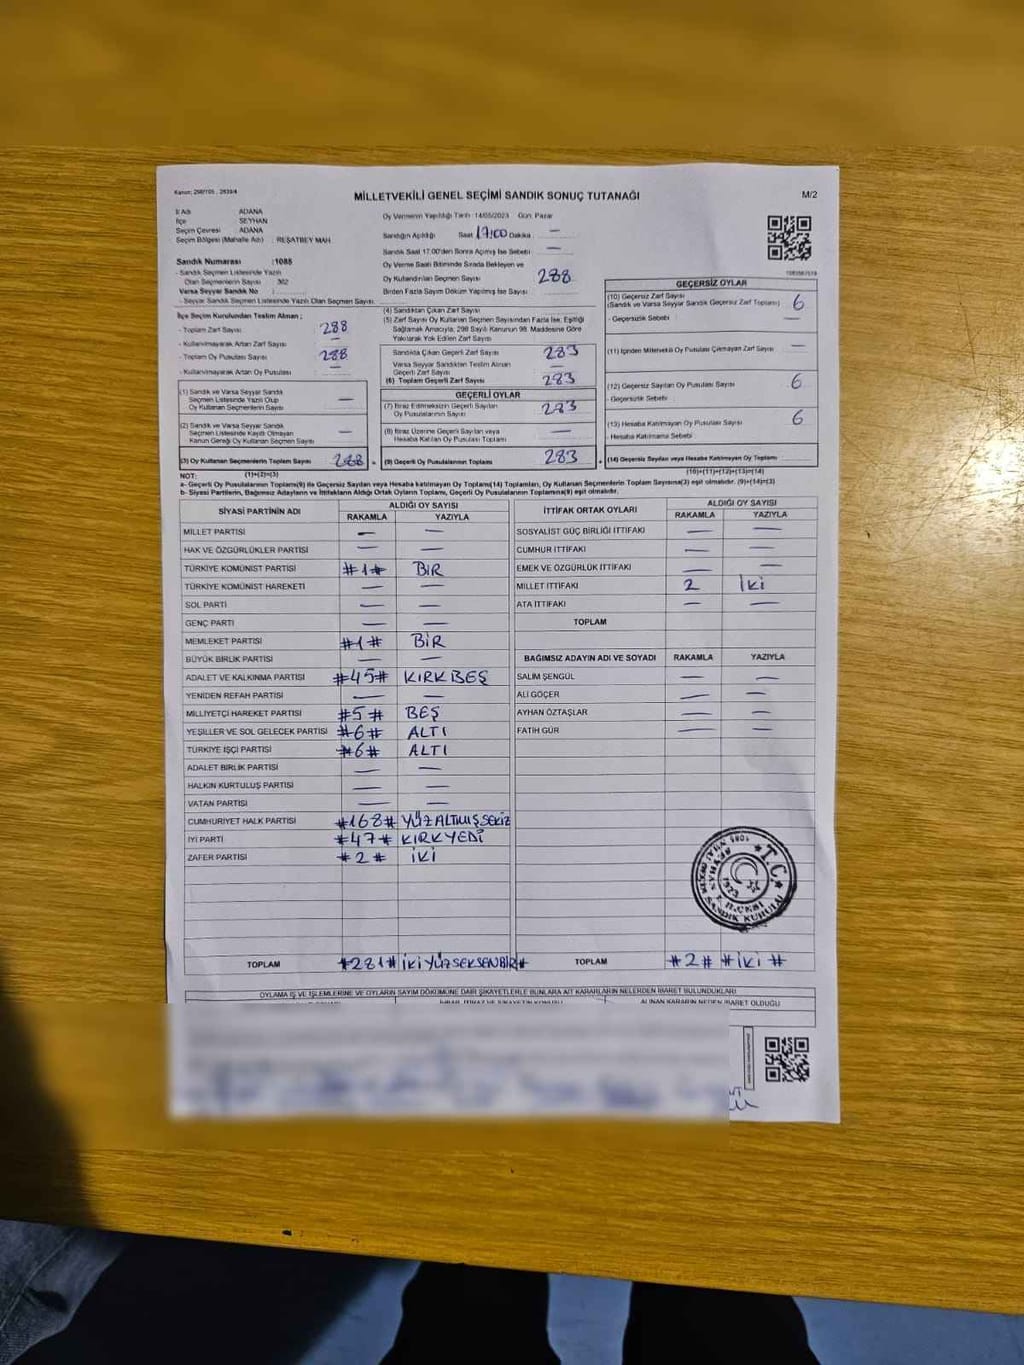 Kanun: 298/105 , 2839/4
MİLLETVEKİLİ GENEL SEÇİMİ SANDIK SONUÇ TUTANAĞI
M/2
İl Adı ADANA
İlçe SEYHAN
Seçim Çevresi ADANA
Seçim Bölgesi (Mahalle Adı) : REŞATBEY MAH.
Oy Vermenin Yapıldığı Tarih : 14/05/2023 Gün: Pazar
Sandığın Açıldığı Saat 17:00 Dakika —
Sandık Saat 17:00'den Sonra Açılmış İse Sebebi —
Oy Verme Saati Bitiminde Sırada Bekleyen ve
Oy Kullandırılan Seçmen Sayısı 288
Birden Fazla Sayım Döküm Yapılmış İse Sayısı
Sandık Numarası : 1085
- Sandık Seçmen Listesinde Yazılı
Olan Seçmenlerin Sayısı 302
Varsa Seyyar Sandık No :
- Seyyar Sandık Seçmen Listesinde Yazılı Olan Seçmen Sayısı
İlçe Seçim Kurulundan Teslim Alınan ;
- Toplam Zarf Sayısı 288
- Kullanılmayarak Artan Zarf Sayısı —
- Toplam Oy Pusulası Sayısı 288
- Kullanılmayarak Artan Oy Pusulası —
(1) Sandık ve Varsa Seyyar Sandık
Seçmen Listesinde Yazılı Olup
Oy Kullanan Seçmenlerin Sayısı —
(2) Sandık ve Varsa Seyyar Sandık
Seçmen Listesinde Kayıtlı Olmayan
Kanun Gereği Oy Kullanan Seçmen Sayısı —
(3) Oy Kullanan Seçmenlerin Toplam Sayısı 288
(1)+(2)=(3)
(4) Sandıktan Çıkan Zarf Sayısı
(5) Zarf Sayısı Oy Kullanan Seçmen Sayısından Fazla İse, Eşitliği
Sağlamak Amacıyla, 298 Sayılı Kanunun 98. Maddesine Göre
Yakılarak Yok Edilen Zarf Sayısı
Sandıkta Çıkan Geçerli Zarf Sayısı 283
Varsa Seyyar Sandıktan Teslim Alınan
Geçerli Zarf Sayısı —
(6) Toplam Geçerli Zarf Sayısı 283
GEÇERLİ OYLAR
(7) İtiraz Edilmeksizin Geçerli Sayılan
Oy Pusulalarının Sayısı 283
(8) İtiraz Üzerine Geçerli Sayılan veya
Hesaba Katılan Oy Pusulası Toplamı —
(9) Geçerli Oy Pusulalarının Toplamı 283
GEÇERSİZ OYLAR
(10) Geçersiz Zarf Sayısı
(Sandık ve Varsa Seyyar Sandık Geçersiz Zarf Toplamı) 6
- Geçersizlik Sebebi : —
(11) İçinden Milletvekili Oy Pusulası Çıkmayan Zarf Sayısı —
(12) Geçersiz Sayılan Oy Pusulası Sayısı 6
- Geçersizlik Sebebi
(13) Hesaba Katılmayan Oy Pusulası Sayısı 6
- Hesaba Katılmama Sebebi
(14) Geçersiz Sayılan veya Hesaba Katılmayan Oy Toplamı
(10)+(11)+(12)+(13)=(14)
NOT:
a- Geçerli Oy Pusulalarının Toplamı(9) ile Geçersiz Sayılan veya Hesaba katılmayan Oy Toplamı(14) Toplamları, Oy Kullanan Seçmenlerin Toplam Sayısına(3) eşit olmalıdır. (9)+(14)=(3)
b- Siyasi Partilerin, Bağımsız Adayların ve İttifakların Aldığı Ortak Oyların Toplamı, Geçerli Oy Pusulalarının Toplamına(9) eşit olmalıdır.
SİYASİ PARTİNİN ADI ALDIĞI OY SAYISI
RAKAMLA YAZIYLA
MİLLET PARTİSİ — —
HAK VE ÖZGÜRLÜKLER PARTİSİ — —
TÜRKİYE KOMÜNİST PARTİSİ #1# BİR
TÜRKİYE KOMÜNİST HAREKETİ — —
SOL PARTİ — —
GENÇ PARTİ — —
MEMLEKET PARTİSİ #1# BİR
BÜYÜK BİRLİK PARTİSİ — —
ADALET VE KALKINMA PARTİSİ #45# KIRKBEŞ
YENİDEN REFAH PARTİSİ — —
MİLLİYETÇİ HAREKET PARTİSİ #5# BEŞ
YEŞİLLER VE SOL GELECEK PARTİSİ #6# ALTI
TÜRKİYE İŞÇİ PARTİSİ #6# ALTI
ADALET BİRLİK PARTİSİ — —
HALKIN KURTULUŞ PARTİSİ — —
VATAN PARTİSİ — —
CUMHURİYET HALK PARTİSİ #168# YÜZALTMIŞSEKİZ
İYİ PARTİ #47# KIRKYEDİ
ZAFER PARTİSİ #2# İKİ
TOPLAM #281# İKİYÜZSEKSENBİR#
İTTİFAK ORTAK OYLARI ALDIĞI OY SAYISI
RAKAMLA YAZIYLA
SOSYALİST GÜÇ BİRLİĞİ İTTİFAKI — —
CUMHUR İTTİFAKI — —
EMEK VE ÖZGÜRLÜK İTTİFAKI — —
MİLLET İTTİFAKI 2 İki
ATA İTTİFAKI — —
TOPLAM
BAĞIMSIZ ADAYIN ADI VE SOYADI RAKAMLA YAZIYLA
SALİM ŞENGÜL — —
ALİ GÖÇER — —
AYHAN ÖZTAŞLAR — —
FATİH GÜR — —
T.C.
SANDIK KURULU
TOPLAM #2# #İKİ#
OYLAMA İŞ VE İŞLEMLERİNE VE OYLARIN SAYIM DÖKÜMÜNE DAİR ŞİKAYETLERLE BUNLARA AİT KARARLARIN NELERDEN İBARET BULUNDUKLARI
ALINAN KARARIN NEDEN İBARET OLDUĞU